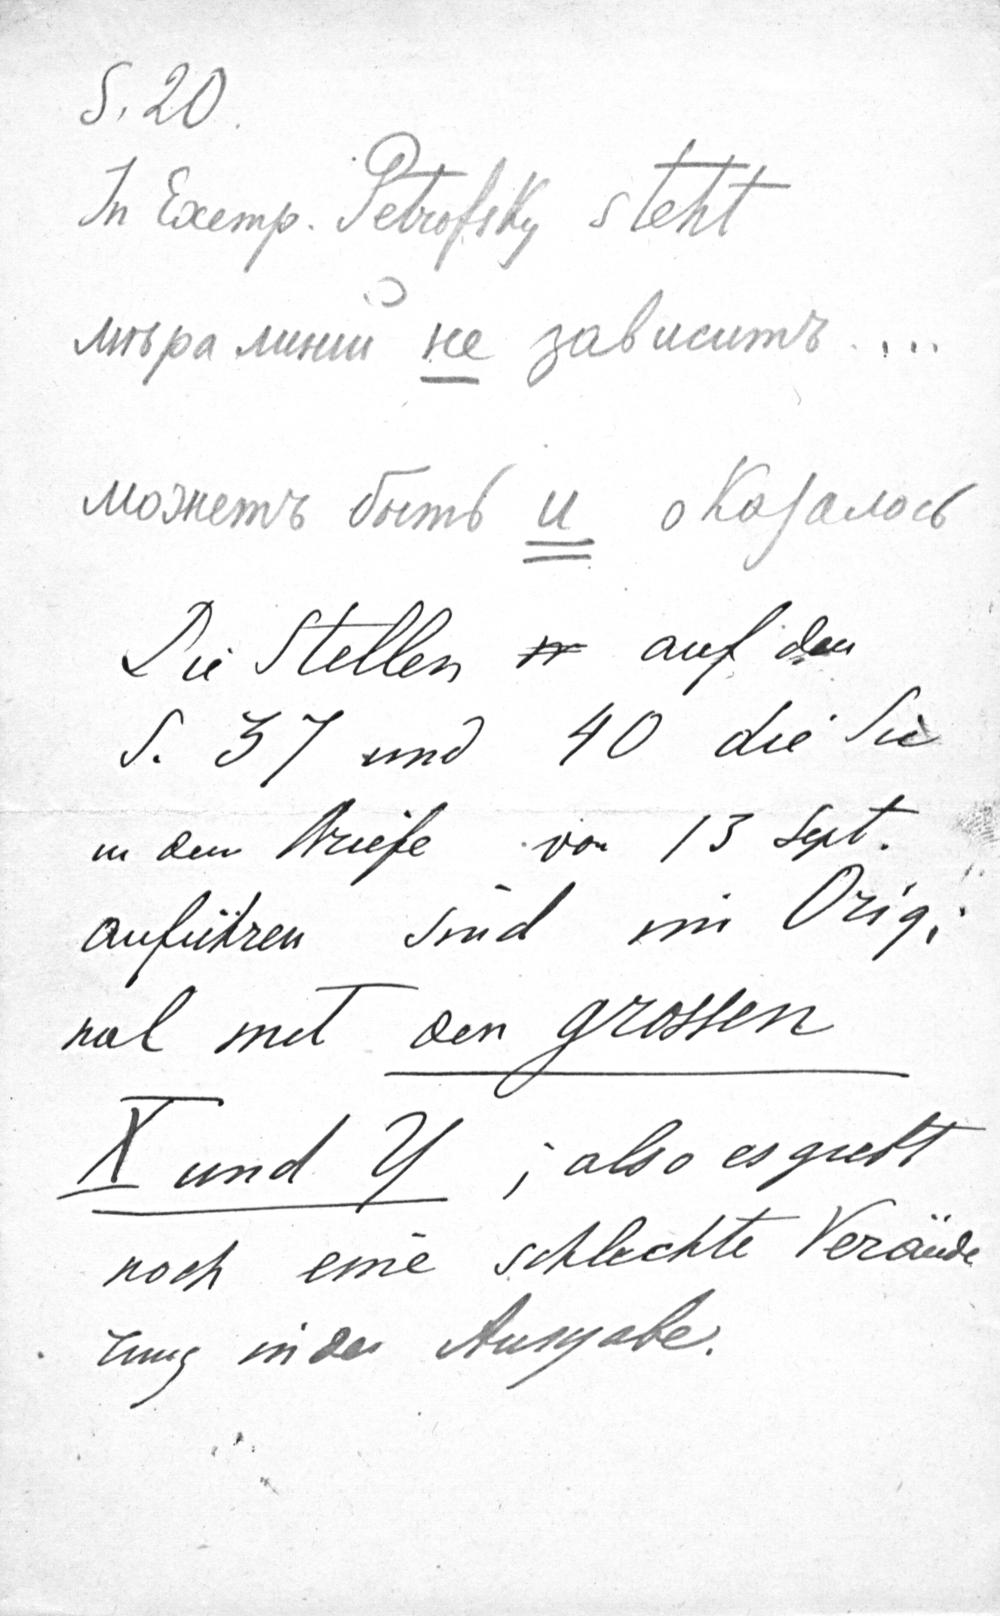 S. 20.
In Exemp. Petrofsky steht
мѣра линий не зависитъ....
можетъ быть и оказалось
Die Stellen auf den
S. 37 und 40 die Sie
in dem Briefe von 13 Sept.
anführen sind im Origi
nal mit den grossen
X und Y ; also es giebt
noch eine schlechte Verände
rung in der Ausgabe.